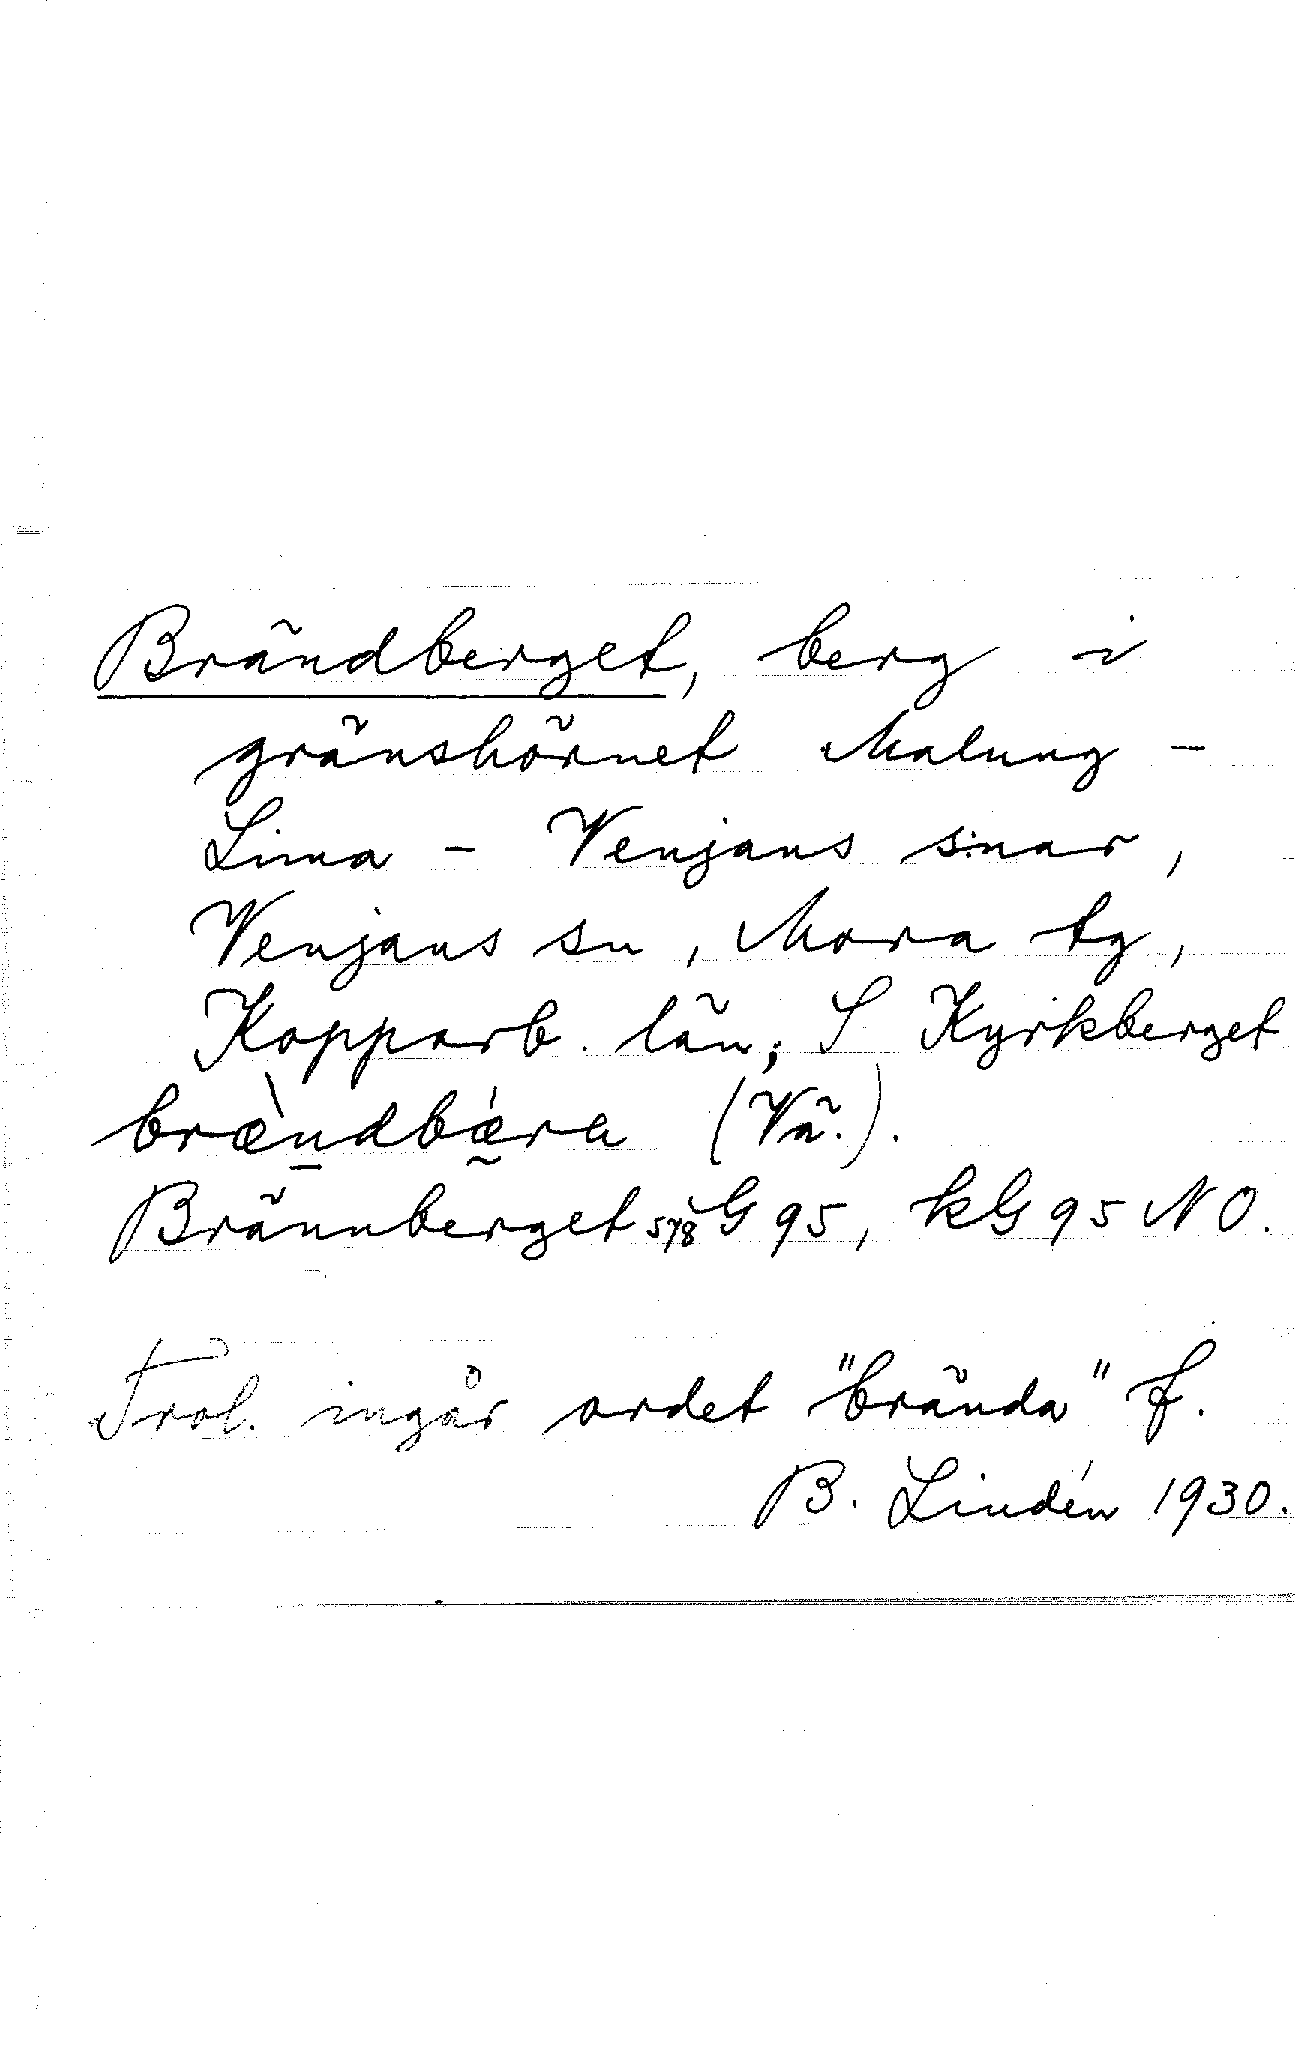 Brändberget, berg i
gränshörnet Malung -
Lima - Venjans s:nar,
Venjans sn, Mora tg,
Kopparb. län; S Kyrkberget
bræ̀ndbǽra (Vä.).
Brännberget 578 G 95, kG 95 NO.
Trol. ingår ordet "brända" f.
B. Lindén 1930.